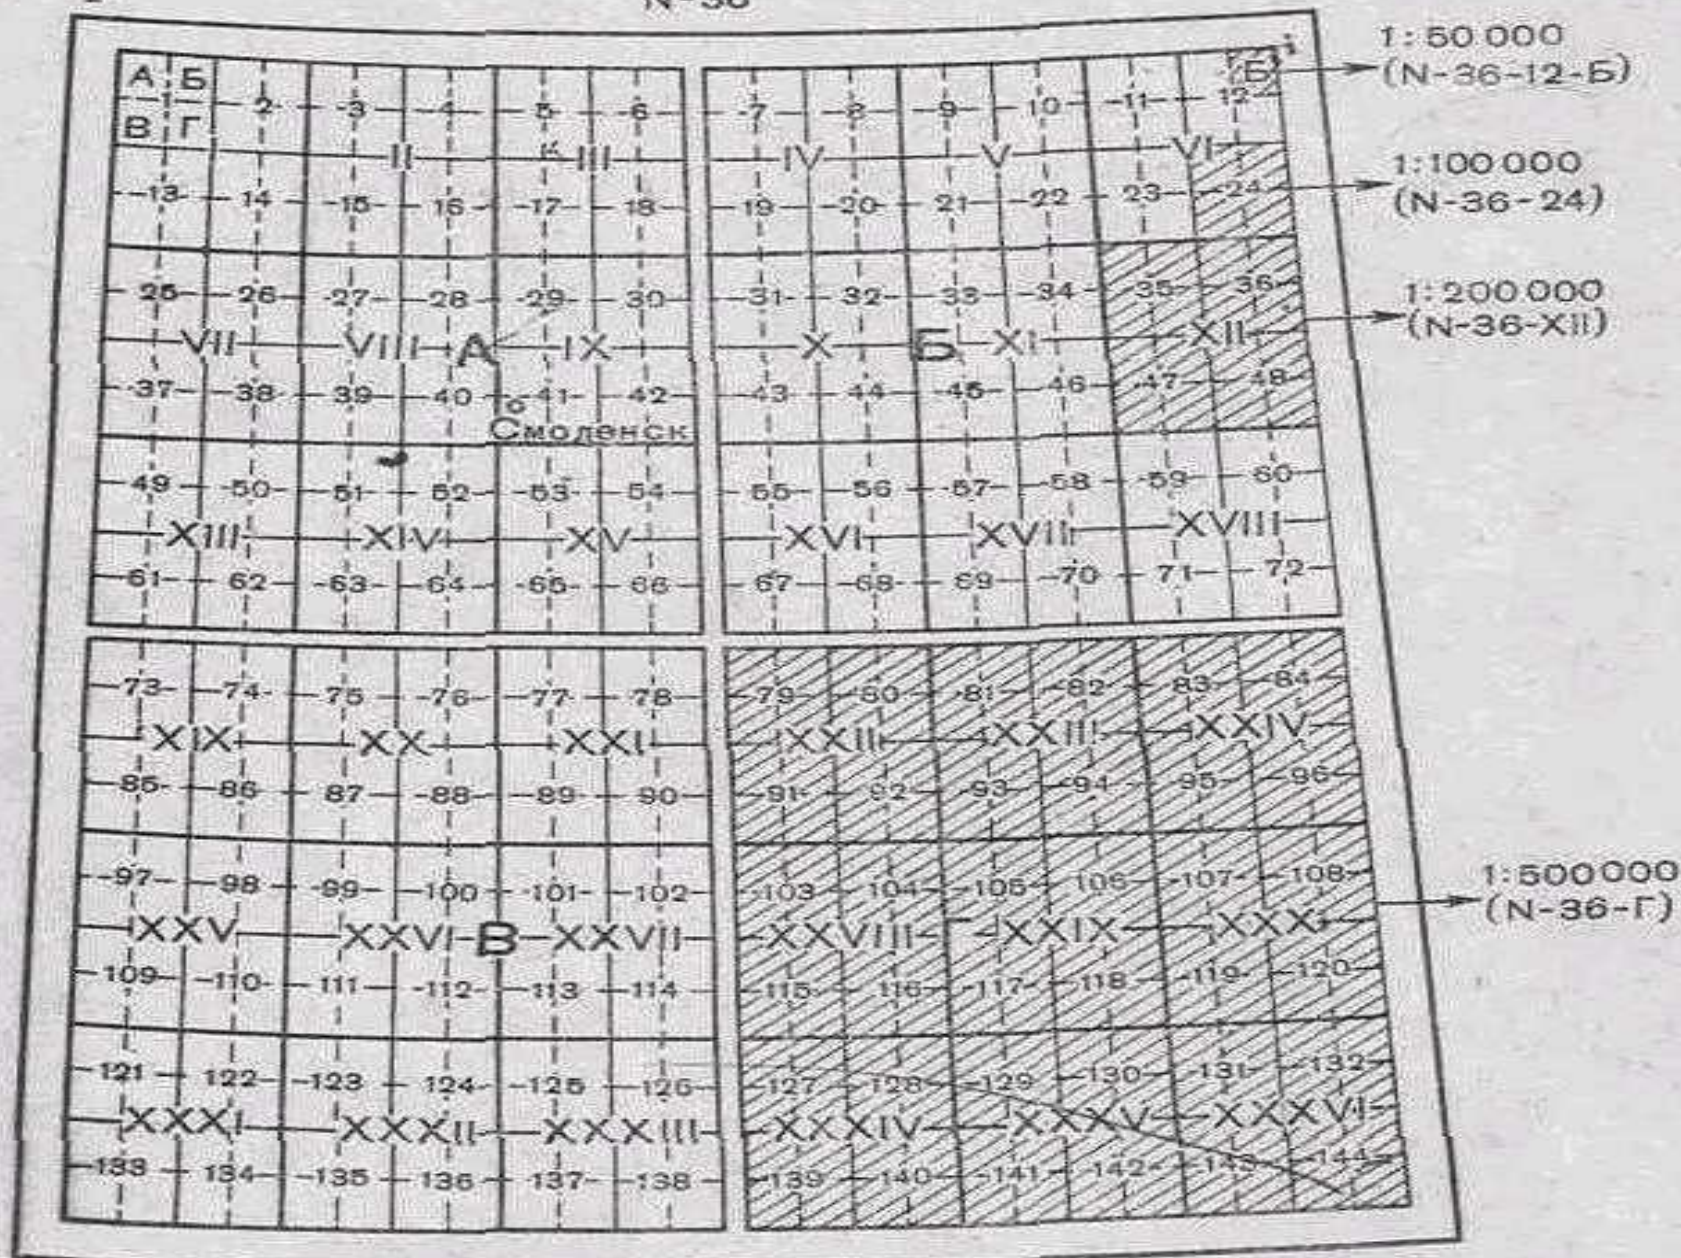 N-36
А Б
В Г
-2- -3- -4- -5- -6- -7- -8- -9- 10 -11- 12 Б
1:50 000
(N-36-12-Б)
II III IV V VI
-13- 14 -15- 16 -17- 18 -19- -20- 21 -22- 23 -24-
1:100 000
(N-36-24)
25 -26- -27- -28 -29- 30 -31- 32 33 -34- 35 36
1:200 000
(N-36-XII)
VII VIII А IX X Б XI XII
-37- -38- -39- 40 -41- 42 -43- 44 -45- -46 -47- -48-
Смоленск
-49- -50- -51- 52 -53- 54 -55- -56 -57- -58 -59- -60
XIII XIV XV XVI XVII XVIII
-61- 62 -63- -64- -65- 66 67 -68- 69 -70 71 -72
-73- -74- -75 -76- -77- 78 -79- -80 -81- -82- 83 -84
XIX XX XXI XXII XXIII XXIV
-85- -86 87 -88- -89- 90 -91- 92 -93- -94 -95- -96-
-97- -98 -99- -100 -101- -102 -103 104 -105 106 -107- -108-
1:500 000
(N-36-Г)
XXV XXVI В XXVII XXVIII XXIX XXX
-109- -110- -111- -112- -113 -114- -115- 116 -117- 118 -119- -120-
-121 122- -123 124- -125 126 -127 128 -129 -130- -131- -132
XXXI XXXII XXXIII XXXIV XXXV XXXVI
-133 134 -135 -136 -137- -138 -139 -140- -141- 142- -143- -144-